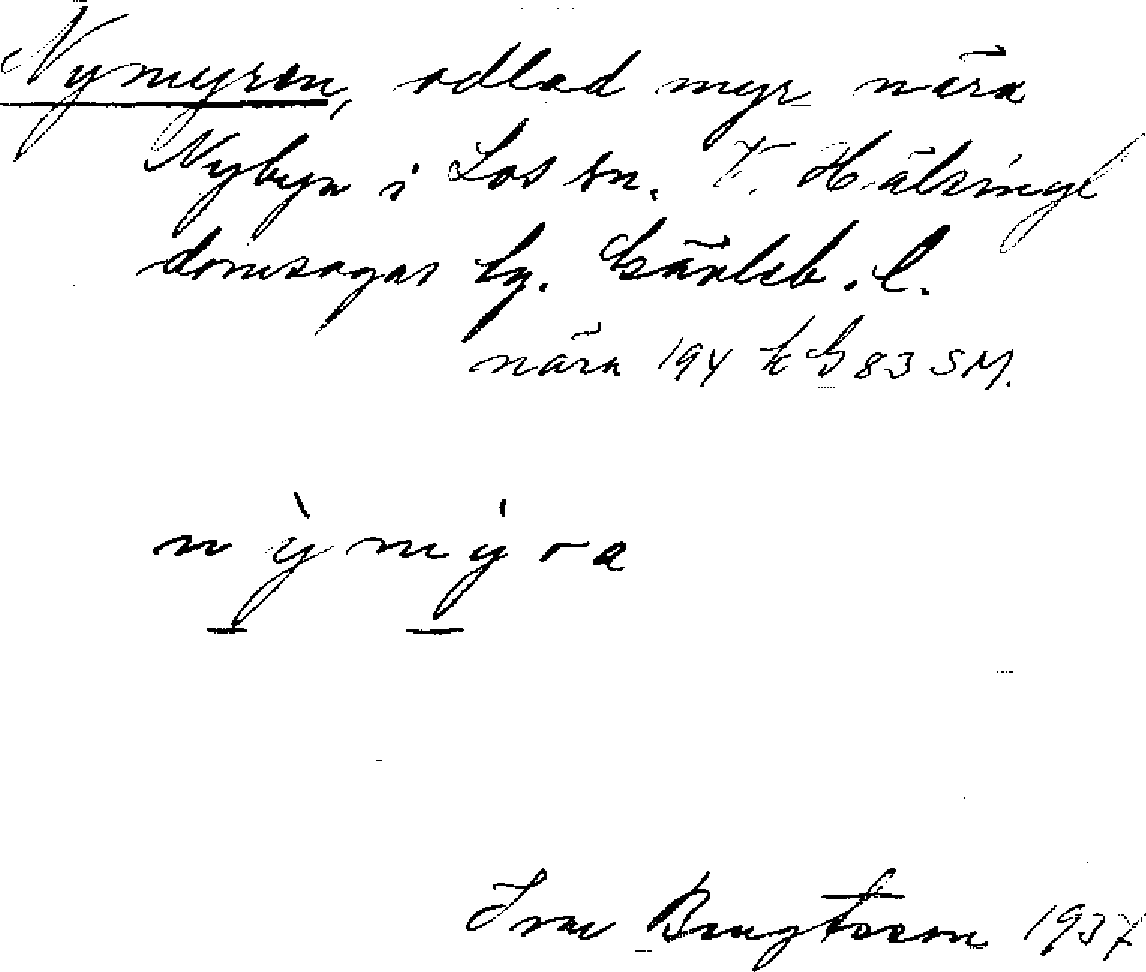 Nymyren, odlad myr nära
Nybyn i Los sn. V. Hälsingl
domsagas tg. Gävleb. l.
nära 194 k G 83 SM.
nỳmýra
Ivar Bengtsson 1937